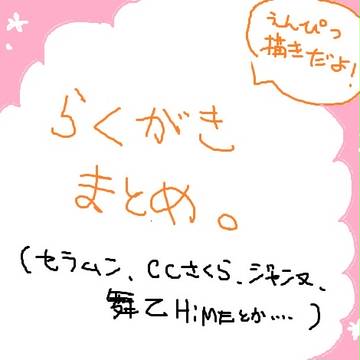 えんぴつ
描きだよ!
らくがき
まとめ。
(セラムン、CCさくら、ジャンヌ、
舞乙HiMEとか……)